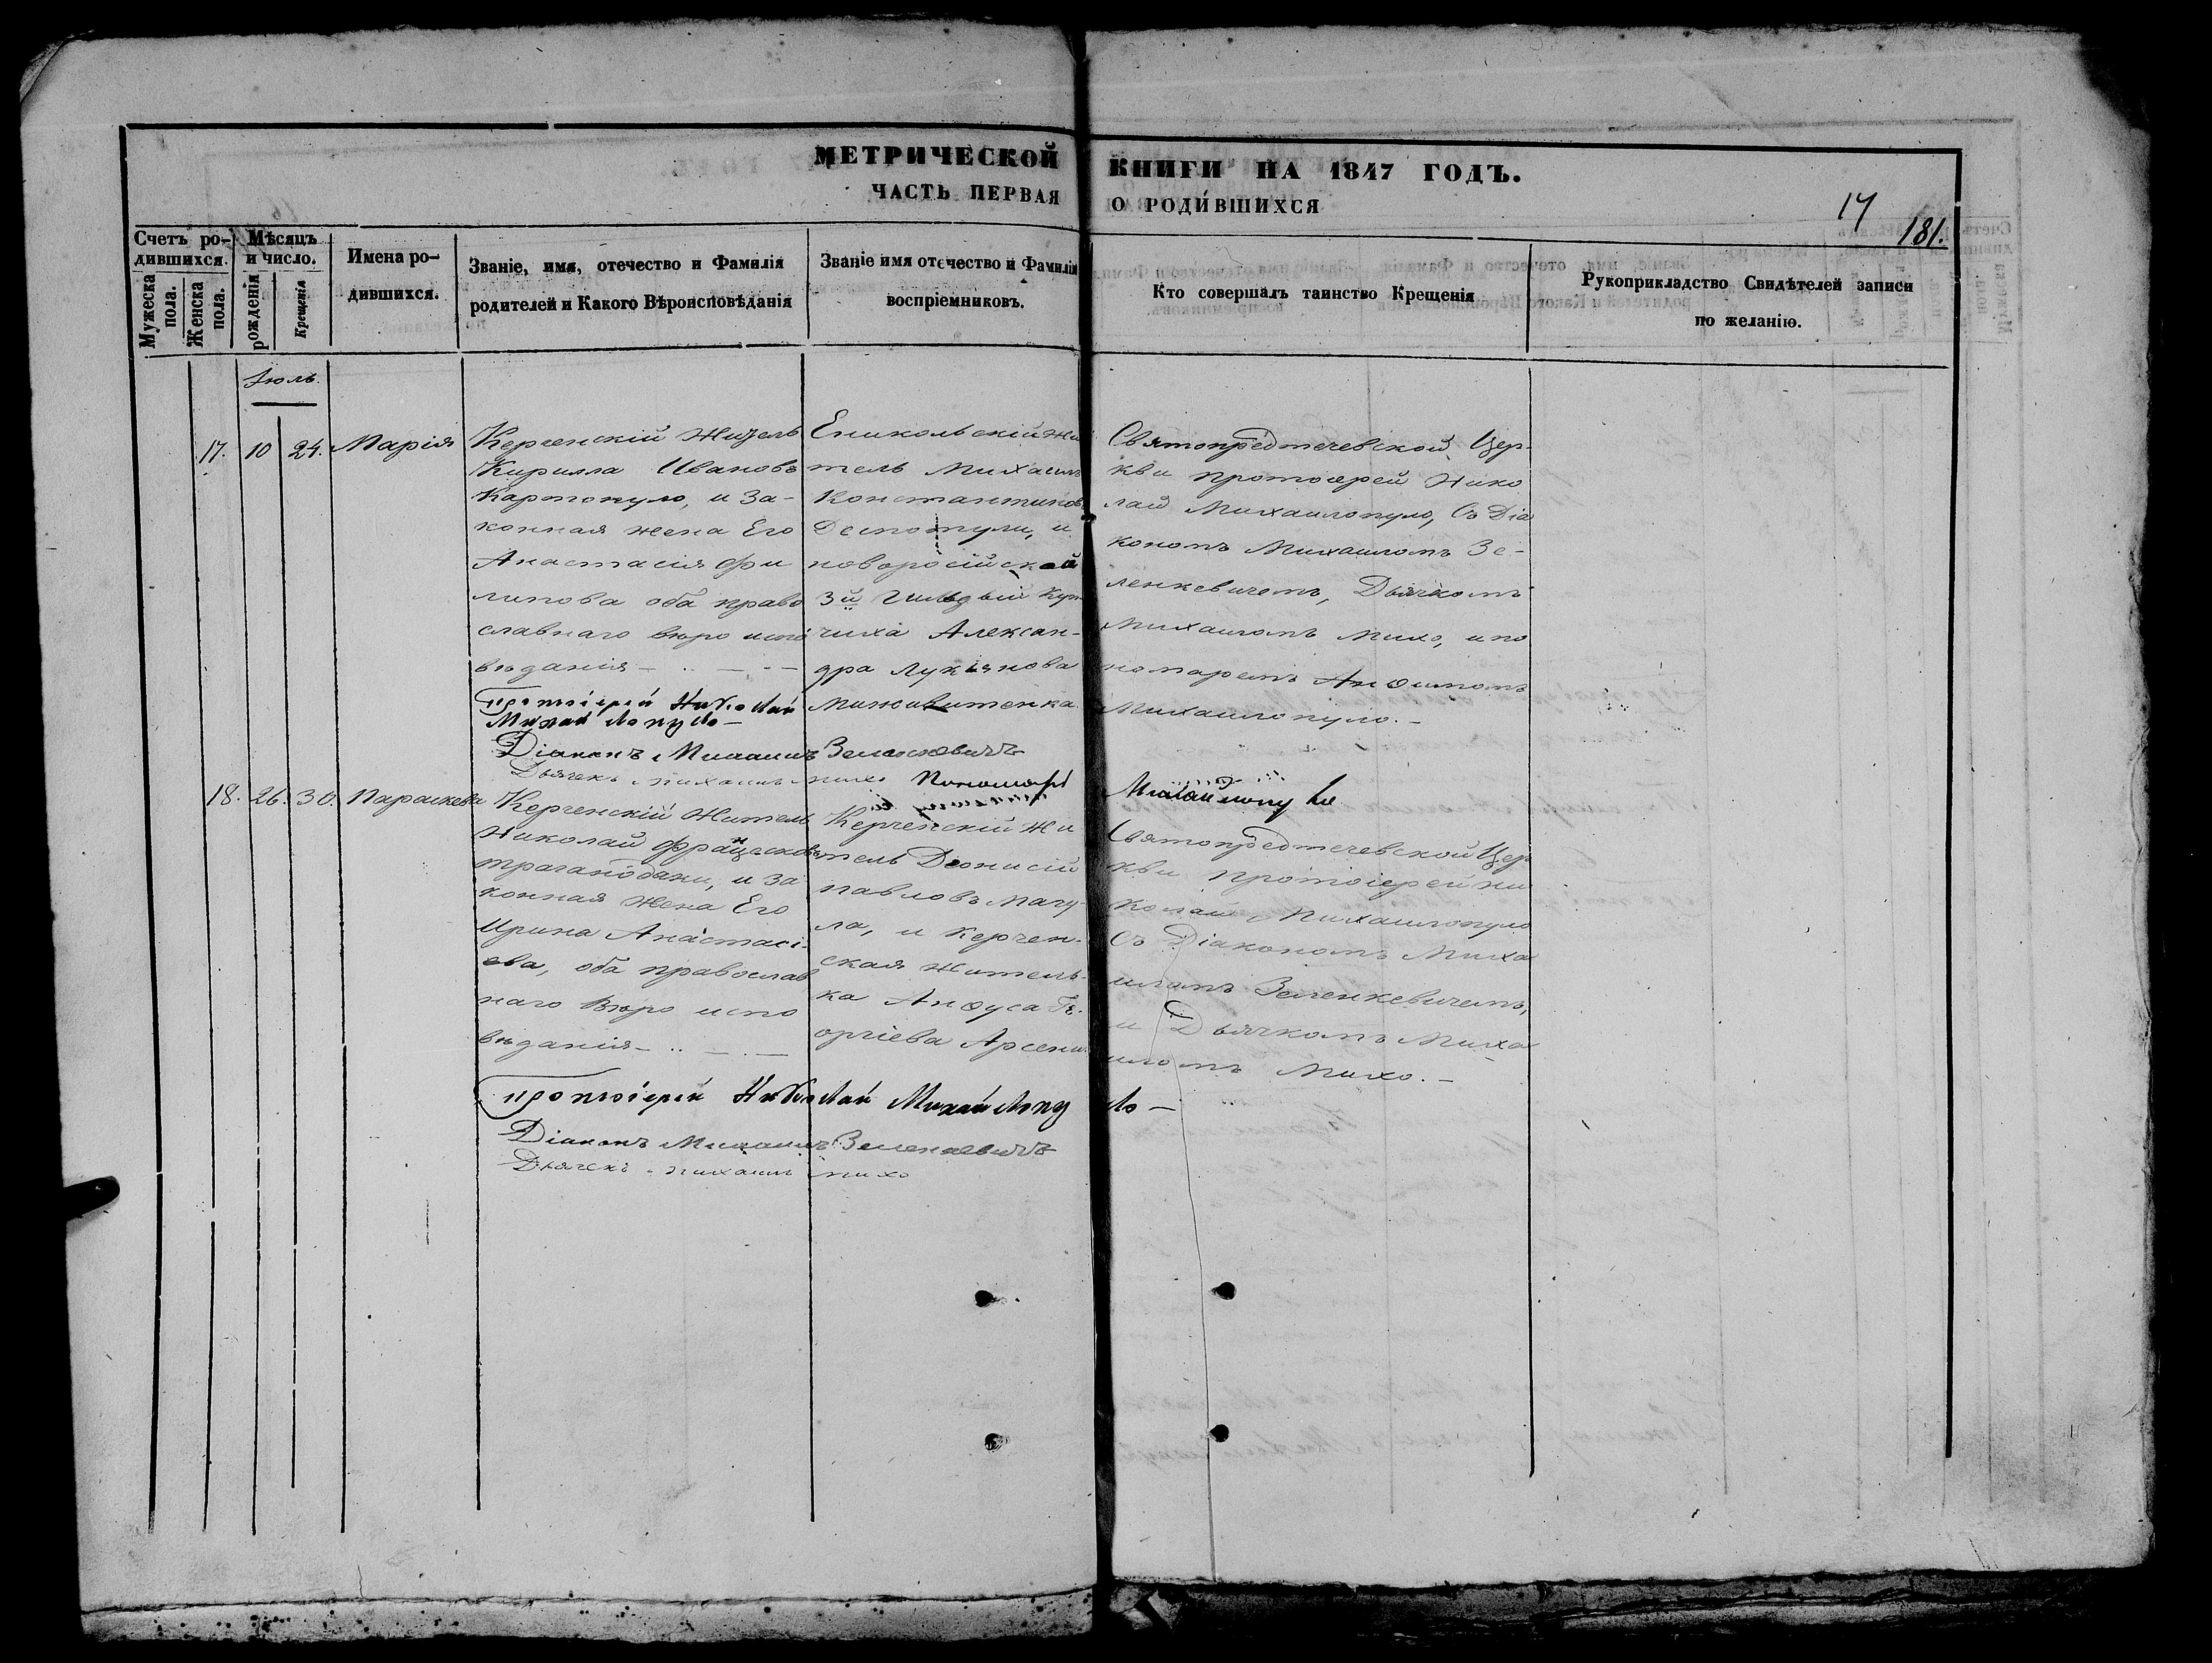 МЕТРИЧЕСКОЙ КНИГИ НА 1847 ГОДЪ.
ЧАСТЬ ПЕРВАЯ О РОДИВШИХСЯ
17
181.
Счетъ ро-
дившихся.
Мужеска пола.
Женска пола.
Мѣсяцъ
и число.
рожденія
Крещенія
Имена ро-
дившихся.
Званіе, имя, отечество и Фамилія
родителей и Какого Вѣроисповѣданія
Званіе имя отечество и Фамилія
воспріемниковъ.
Кто совершалъ таинство Крещенія
Рукоприкладство Свидѣтелей записи
по желанію.
Іюль.
17. 10 24. Марія
Керченскій Житель
Кирилла Ивановъ
Картопуло, и за-
конная жена Его
Анастасія Фи
липова оба право
славнаго вѣро испо
вѣданія
Еникольскій жи
тель Михаилъ
Константиновъ
Деспотули, и
новоросійской
3й Гильдіи Куп
чиха Алексан-
дра Лукіянова
Святопредтечевской Цер-
кви протоіерей Нико
лай Михаилопуло, Съ Діа
кономъ Михаиломъ Зе-
ленкевичемъ, Дьячкомъ
Михаиломъ Михо, и по
номаремъ Анфимомъ
Михаилопуло.
Протоіерей Николай
Михайлопуло
Діаконъ Михаилъ Зеленкевичъ
Дьячекъ Михаилъ Михо Пономарь
Михайлопуло
18. 26. 30. Параскева
Керченскій Житель
Николай Францесковъ
Траганодаки, и за
конная жена Его
Ирина Анастасі-
ева, оба православ
наго Вѣро испо
вѣданія
Керченскій Жи
тель Деонисій
Павловъ Магу-
ла, и Керчен-
ская житель-
ка Анфуса Ге-
оргіева Арсени
Святопредтечевской Цер
кви протоіерей Ни
колай Михаилопуло
Съ Діакономъ Миха
иломъ Зеленкевичемъ,
и Дьячкомъ Миха
иломъ Михо.
Протоіерей Николай Михайлопуло
Діаконъ Михаилъ Зеленкевичъ
Дьячекъ Михаилъ Михо